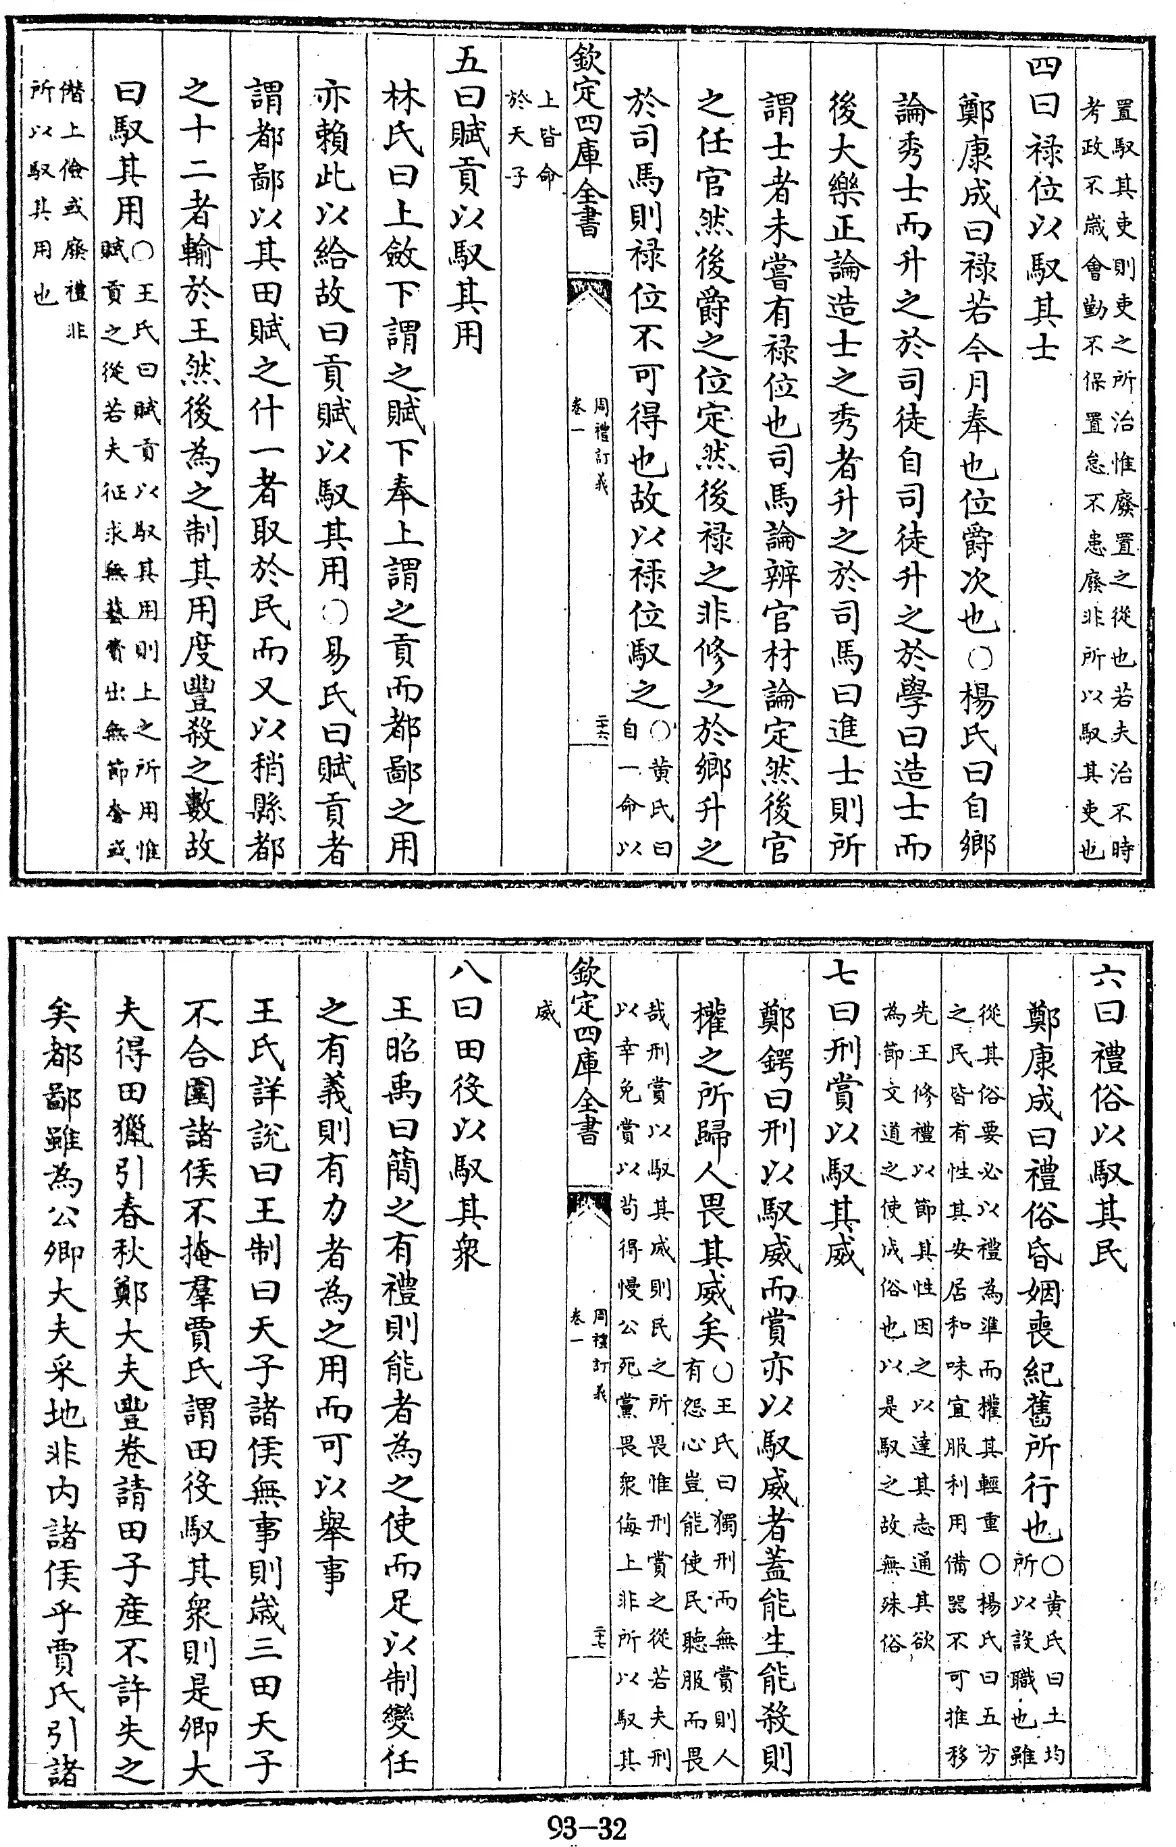 置馭其吏則吏之所治惟廢置之從也若夫治不時
考政不歲會勤不保置怠不患廢非所以馭其吏也
四曰禄位以馭其士
鄭康成曰禄若今月奉也位爵次也○楊氏曰自鄉
論秀士而升之於司徒自司徒升之於學曰造士而
後大樂正論造士之秀者升之於司馬曰進士則所
謂士者未嘗有禄位也司馬論辨官材論定然後官
之任官然後爵之位定然後禄之非修之於鄉升之
於司馬則禄位不可得也故以禄位馭之○黄氏曰
自一命以
欽定四庫全書
周禮訂義
卷一
二十六
上皆命
於天子
五曰賦貢以馭其用
林氏曰上斂下謂之賦下奉上謂之貢而都鄙之用
亦賴此以給故曰貢賦以馭其用○易氏曰賦貢者
謂都鄙以其田賦之什一者取於民而又以稍縣都
之十二者輸於王然後為之制其用度豐殺之數故
曰馭其用○王氏曰賦貢以馭其用則上之所用惟
賦貢之從若夫征求無藝費出無節奢或
僭上儉或廢禮非
所以馭其用也
六曰禮俗以馭其民
鄭康成曰禮俗昏姻喪紀舊所行也○黄氏曰土均
所以設職也雖
從其俗要必以禮為準而權其輕重○楊氏曰五方
之民皆有性其安居和味宜服利用備器不可推移
先王修禮以節其性因之以達其志通其欲
為節文道之使成俗也以是馭之故無殊俗
七曰刑賞以馭其威
鄭鍔曰刑以馭威而賞亦以馭威者蓋能生能殺則
權之所歸人畏其威矣○王氏曰獨刑而無賞則人
有怨心豈能使民聽服而畏
哉刑賞以馭其威則民之所畏惟刑賞之從若夫刑
以幸免賞以茍得慢公死黨畏衆侮上非所以馭其
欽定四庫全書
周禮訂義
卷一
二十七
威
八曰田役以馭其衆
王昭禹曰簡之有禮則能者為之使而足以制變任
之有義則有力者為之用而可以舉事
王氏詳說曰王制曰天子諸侯無事則歲三田天子
不合圍諸侯不掩羣賈氏謂田役馭其衆則是卿大
夫得田獵引春秋鄭大夫豐卷請田子產不許失之
矣都鄙雖為公卿大夫采地非内諸侯乎賈氏引諸
93-32